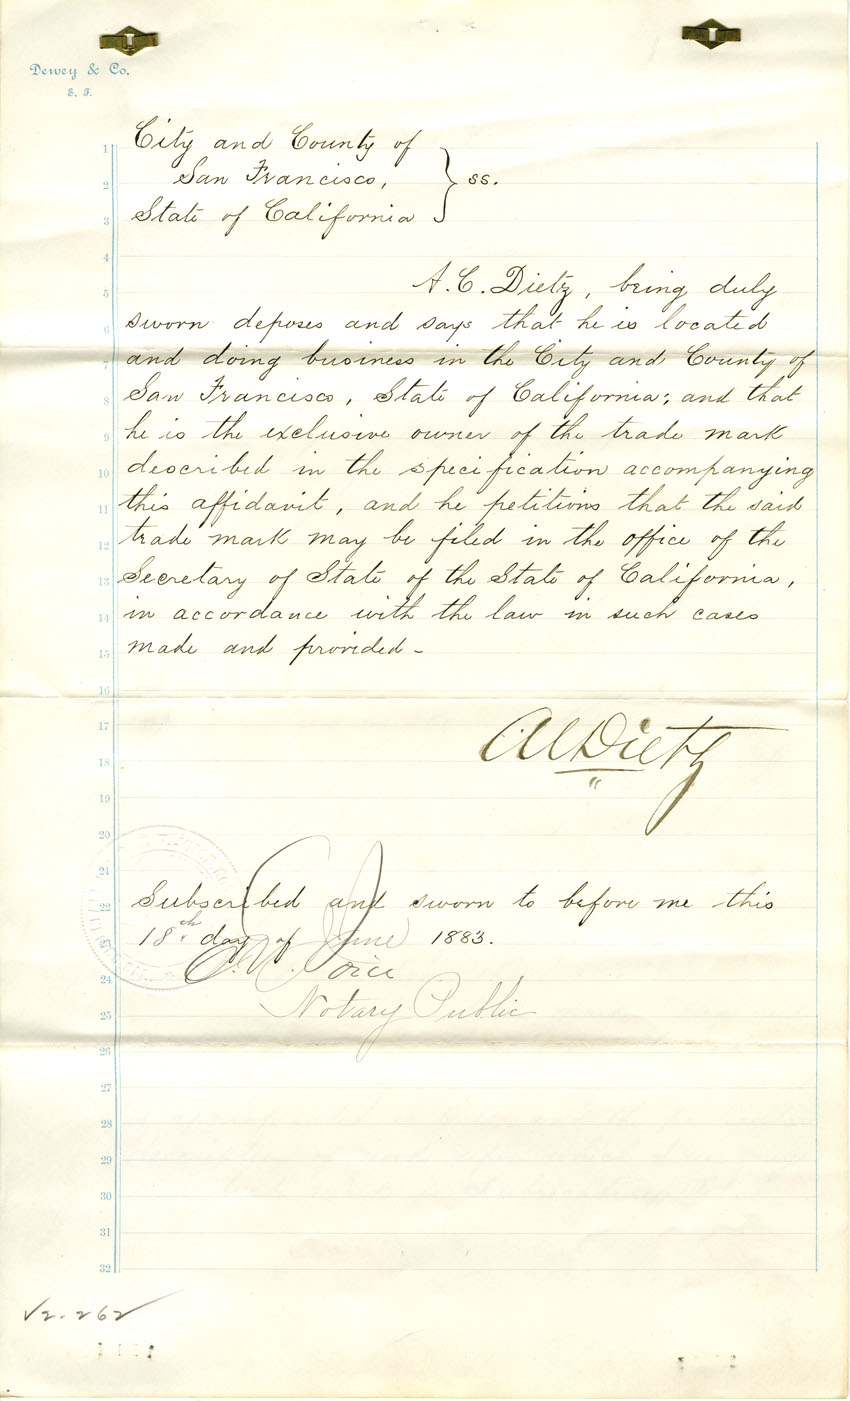 Dewey & Co.
S. F.
City and County of
San Francisco,
State of California
} ss.
A. C. Dietz, being duly
sworn deposes and says that he is located
and doing business in the City and County of
San Francisco, State of California; and that
he is the exclusive owner of the trade mark
described in the specification accompanying
this affidavit, and he petitions that the said
trade mark may be filed in the office of the
Secretary of State of the State of California,
in accordance with the law in such cases
made and provided-
A C Dietz
Subscribed and sworn to before me this
18th day of June 1883.
Notary Public
1
2
3
4
5
6
7
8
9
10
11
12
13
14
15
16
17
18
19
20
21
22
23
24
25
26
27
28
29
30
31
32
√2-262